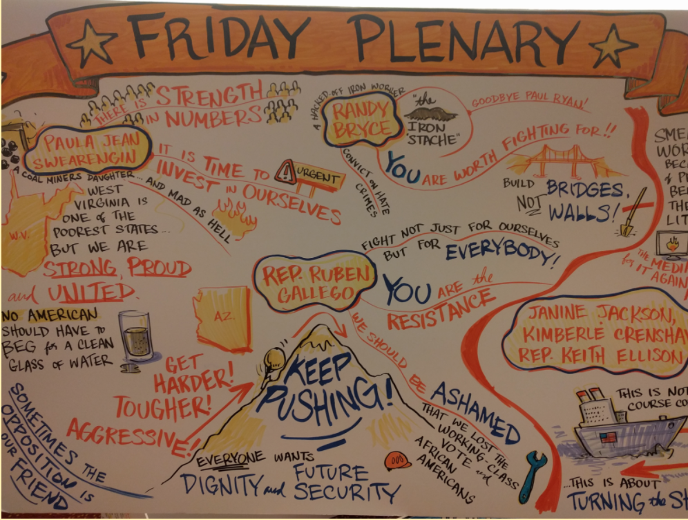 FRIDAY PLENARY
THERE IS STRENGTH
IN NUMBERS
PAULA JEAN
SWEARENGIN
A COAL MINERS DAUGHTER
AND MAD AS HELL
IT IS TIME TO
INVEST IN OURSELVES
URGENT
W.V.
WEST
VIRGINIA IS
ONE OF THE
POOREST STATES...
BUT WE ARE
STRONG, PROUD
and UNITED.
NO AMERICAN
SHOULD HAVE TO
BEG for A CLEAN
GLASS OF WATER
SOMETIMES THE
OPPOSITION IS
OUR FRIEND
A PISSED OFF IRON WORKER
RANDY
BRYCE
"the
IRON
'STACHE"
GOODBYE PAUL RYAN!
CONVICT ON HATE
CRIMES
YOU ARE WORTH FIGHTING FOR!!
BUILD BRIDGES,
NOT WALLS!
FIGHT NOT JUST FOR OURSELVES
BUT FOR EVERYBODY!
REP. RUBEN
GALLEGO
YOU ARE the
RESISTANCE
AZ.
GET
HARDER!
TOUGHER!
AGGRESSIVE!
KEEP
PUSHING!
WE SHOULD BE ASHAMED
THAT WE LOST THE
WORKING-CLASS
VOTE and
AFRICAN
AMERICANS
EVERYONE WANTS
DIGNITY and FUTURE
SECURITY
SME
WOR
BEC
& P
BE
THE
LIT
THE MEDI
for IT AGAIN
JANINE JACKSON,
KIMBERLE CRENSHA
REP. KEITH ELLISON
THIS IS NOT
COURSE CO
...THIS IS ABOUT
TURNING the SH